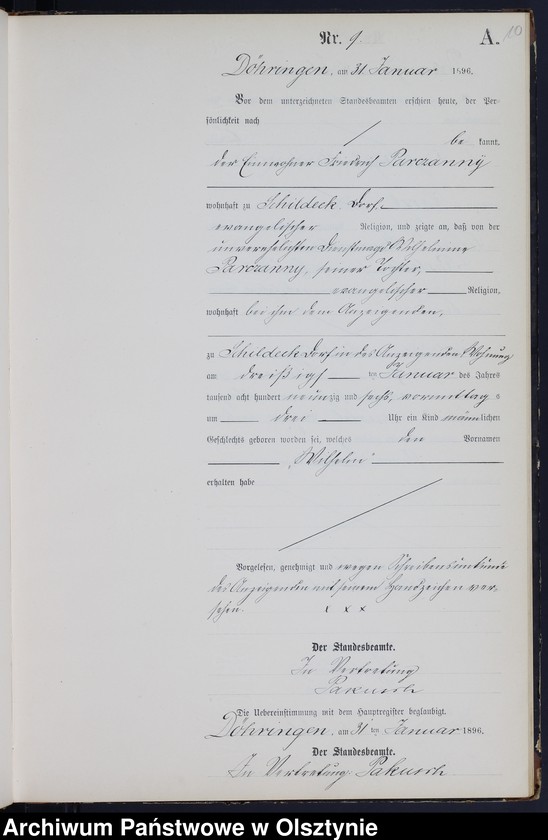 10
Nr. 9. A.
Döhringen, am 31. Januar 1896.
Vor dem unterzeichneten Standesbeamten erschien heute, der Per-
sönlichkeit nach
be kannt,
der Einwohner Friedrich Parczanny
wohnhaft zu Schildeck Dorf,
evangelischer Religion, und zeigte an, daß von der
unverehelichten Dienstmagd Wilhelmine
Parczanny, seiner Tochter,
evangelischer Religion,
wohnhaft bei ihm dem Anzeigenden,
zu Schildeck Dorf in des Anzeigenden Wohnung
am dreißigst ten Januar des Jahres
tausend acht hundert neunzig und sechs, vormittags
um drei Uhr ein Kind männlichen
Geschlechts geboren worden sei, welches den Vornamen
„Wilhelm“
erhalten habe
Vorgelesen, genehmigt und wegen Schreibensunkunde
des Anzeigenden mit seinem Handzeichen ver-
sehen. x x x
Der Standesbeamte.
In Vertretung
Pakusch
Die Uebereinstimmung mit dem Hauptregister beglaubigt.
Döhringen, am 31 ten Januar 1896.
Der Standesbeamte.
In Vertretung Pakusch
Archiwum Państwowe w Olsztynie